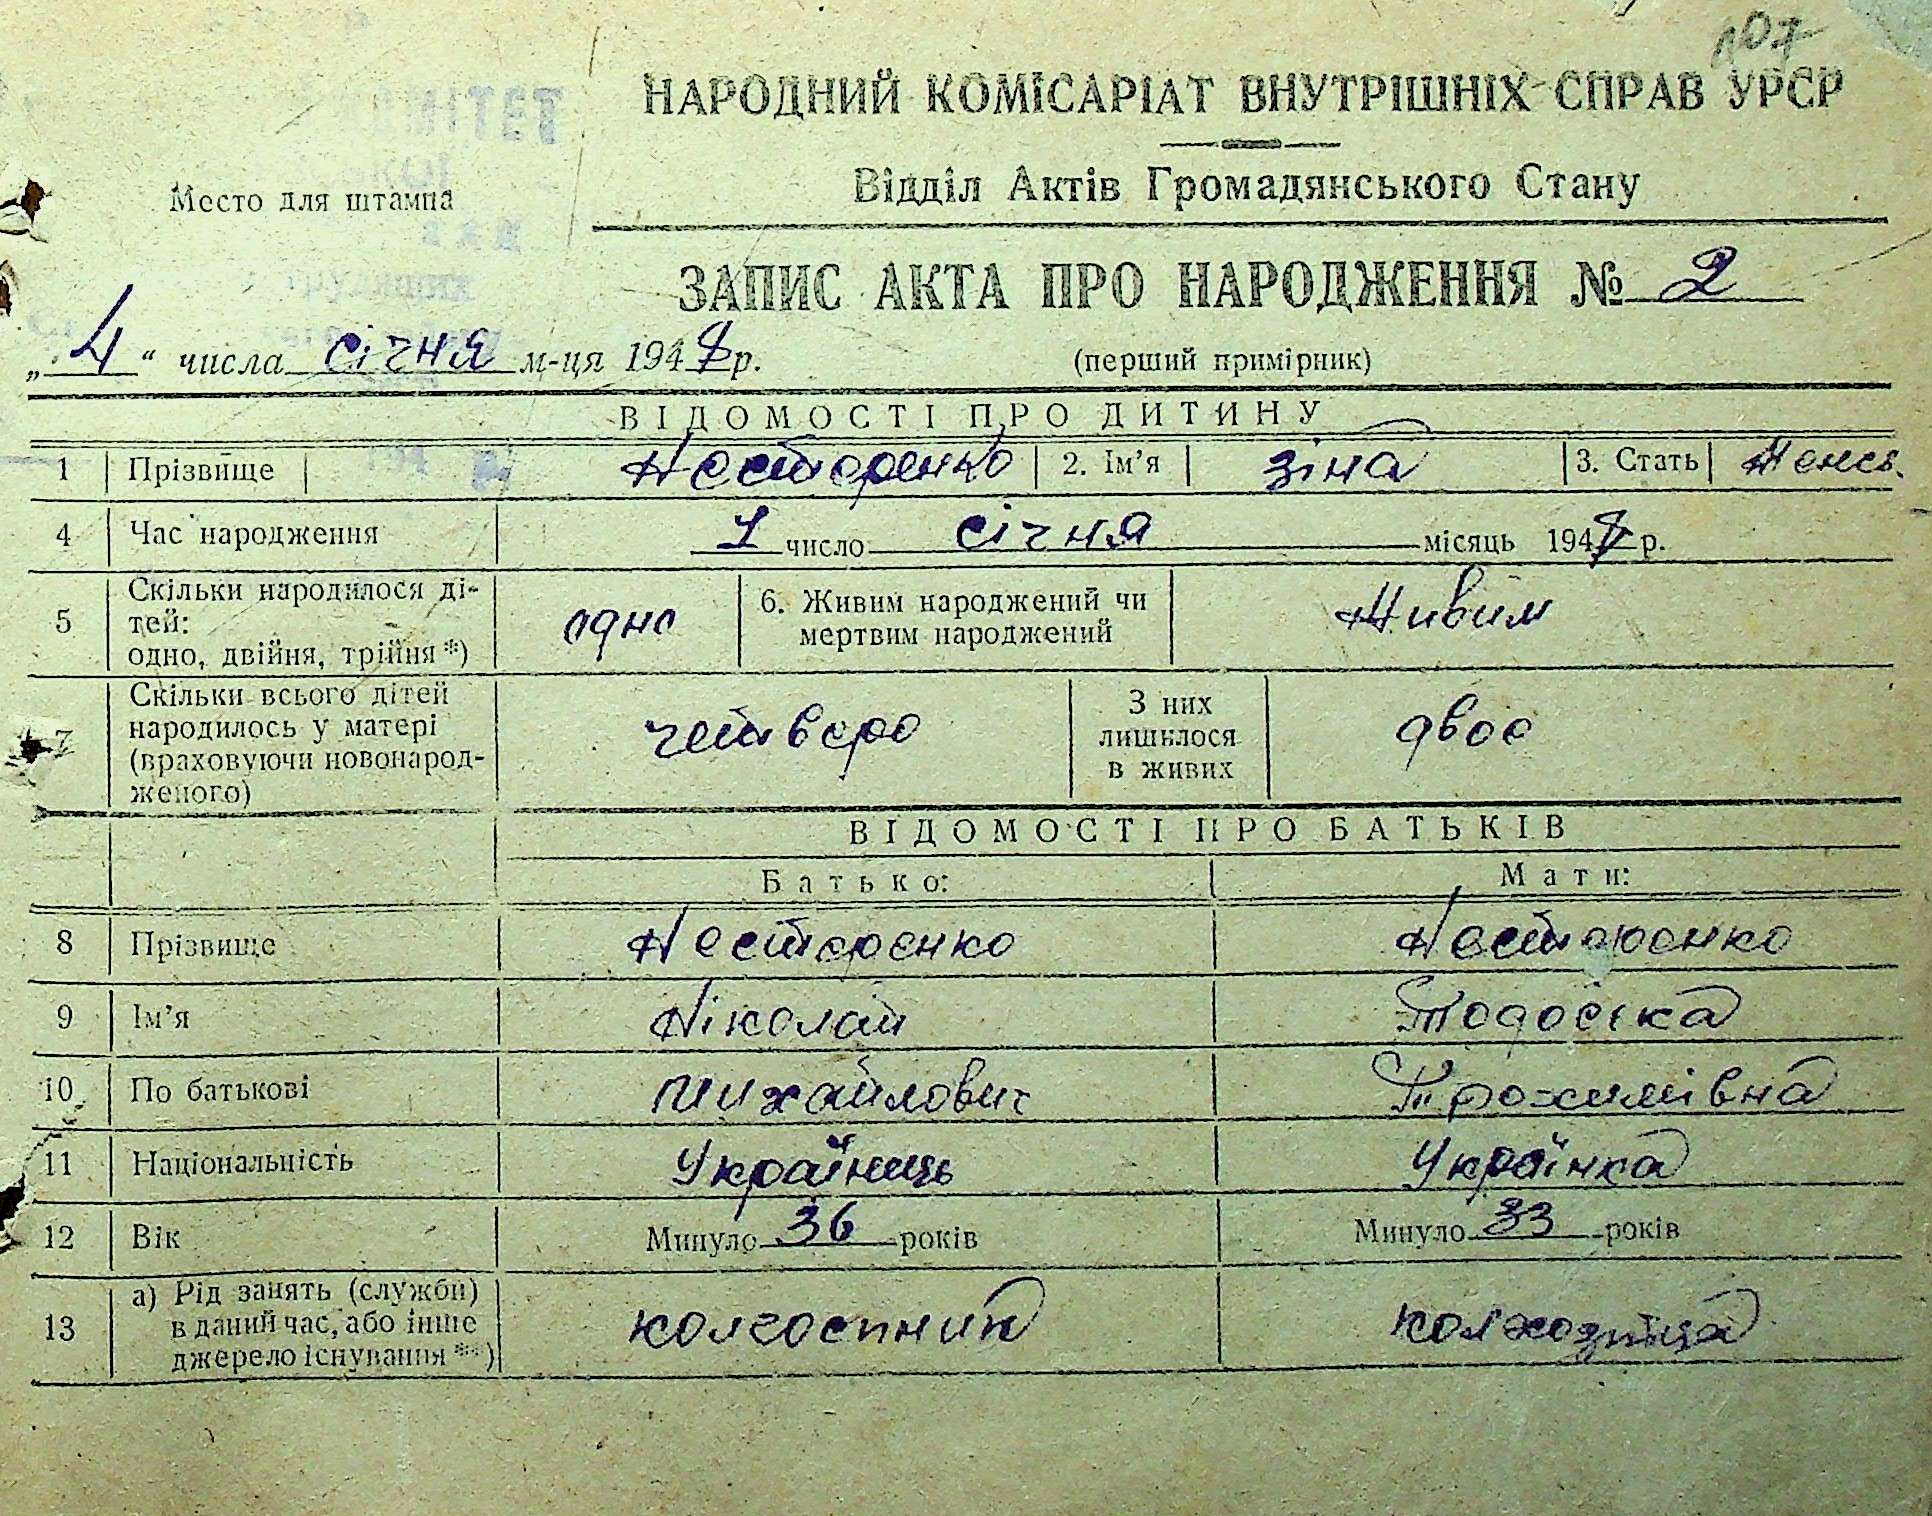 107
НАРОДНИЙ КОМІСАРІАТ ВНУТРІШНІХ СПРАВ УРСР
Відділ Актів Громадянського Стану
Место для штампа
ЗАПИС АКТА ПРО НАРОДЖЕННЯ № 2
„4“ числа січня м-ця 1948 р.
(перший примірник)
ВІДОМОСТІ ПРО ДИТИНУ
1 Прізвище Несторенко 2. Ім’я Зіна 3. Стать Женсь.
4 Час народження 1 число січня місяць 1948 р.
5 Скільки народилося ді-
тей:
одно, двійня, трійня *) одно 6. Живим народжений чи
мертвим народжений Живим
7 Скільки всього дітей
народилось у матері
(враховуючи новонарод-
женого) четверо З них
лишилося
в живих двоє
ВІДОМОСТІ ПРО БАТЬКІВ
Батько: Мати:
8 Прізвище Несторенко Несторенко
9 Ім’я Ніколай Тодоська
10 По батькові Михайлович Трохимівна
11 Національність Українець Українка
12 Вік Минуло 36 років Минуло 33 років
13 а) Рід занять (служби)
в даний час, або інше
джерело існування **) колгоспник колхозніца